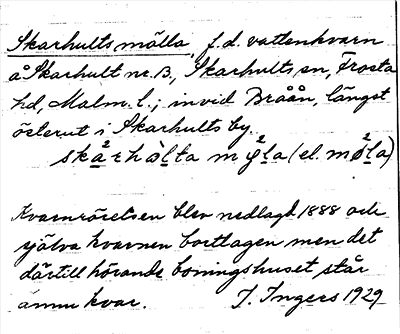 Skarhults mölla, f.d. vattenkvarn
å Skarhult nr. 13, Skarhults sn, Frosta
hd, Malm. l.; invid Bråån, längst
österut i Skarhults by.
skarhòlta mø̨²la (el. mø²la)
Kvarnrörelsen blev nedlagd 1888 och
själva kvarnen borttagen men det
därtill hörande boningshuset står
ännu kvar. J. Ingers 1929